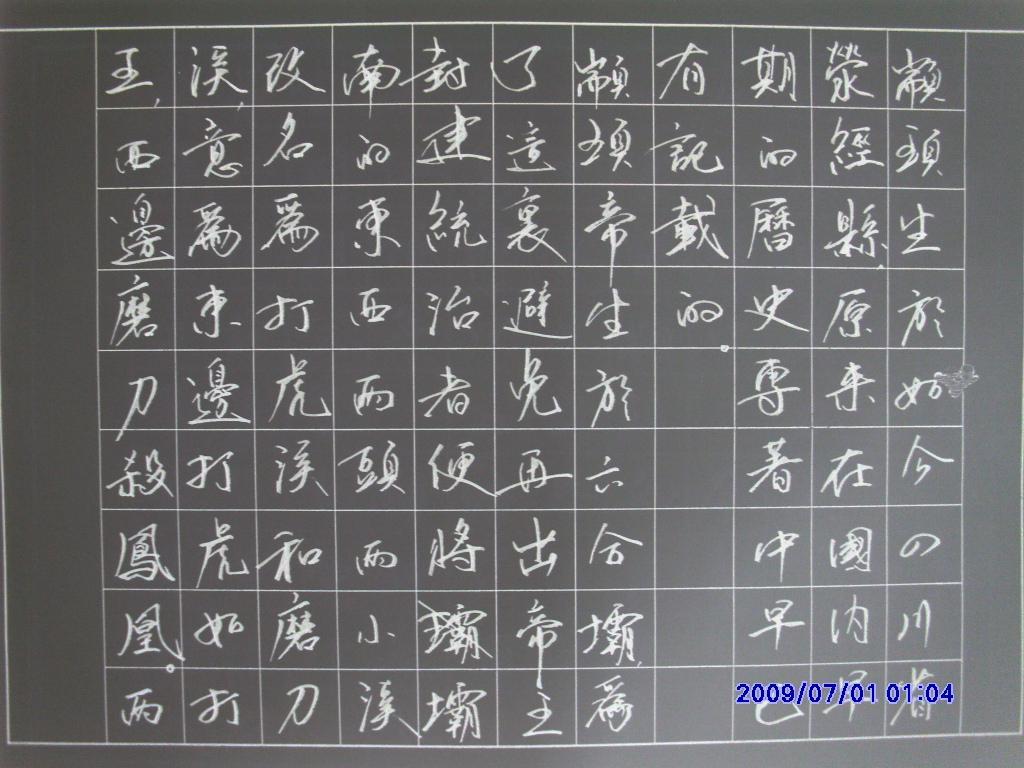 顓頊生於如今四川省
滎經縣,原来在國内早
期的曆史專著中早已
有記載的。
顓頊帝生於六合壩,爲
了這裏避免再出帝王
封建統治者便將壩壩
南的東西兩頭兩小溪
改名爲打虎溪和磨刀
溪,意爲東邊打虎如打
王,西邊磨刀殺鳳凰。兩
2009/07/01 01:04